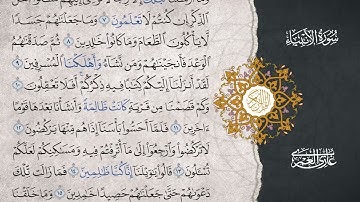 سُورَةُ الأَنْبِيَاءِ
ٱلذِّكْرِ إِن كُنتُمْ لَا تَعْلَمُونَ ٧ وَمَا جَعَلْنَٰهُمْ جَسَدًا
لَّا يَأْكُلُونَ ٱلطَّعَامَ وَمَا كَانُوا۟ خَٰلِدِينَ ٨ ثُمَّ صَدَقْنَٰهُمُ
ٱلْوَعْدَ فَأَنجَيْنَٰهُمْ وَمَن نَّشَآءُ وَأَهْلَكْنَا ٱلْمُسْرِفِينَ ٩
لَقَدْ أَنزَلْنَآ إِلَيْكُمْ كِتَٰبًا فِيهِ ذِكْرُكُمْ أَفَلَا تَعْقِلُونَ ١٠
وَكَمْ قَصَمْنَا مِن قَرْيَةٍ كَانَتْ ظَالِمَةً وَأَنشَأْنَا بَعْدَهَا قَوْمًا
ءَاخَرِينَ ١١ فَلَمَّآ أَحَسُّوا۟ بَأْسَنَآ إِذَا هُم مِّنْهَا يَرْكُضُونَ ١٢
لَا تَرْكُضُوا۟ وَٱرْجِعُوٓا۟ إِلَىٰ مَآ أُتْرِفْتُمْ فِيهِ وَمَسَٰكِنِكُمْ لَعَلَّكُمْ
تُسْـَٔلُونَ ١٣ قَالُوا۟ يَٰوَيْلَنَآ إِنَّا كُنَّا ظَٰلِمِينَ ١٤ فَمَا زَالَت تِّلْكَ
دَعْوَىٰهُمْ حَتَّىٰ جَعَلْنَٰهُمْ حَصِيدًا خَٰمِدِينَ ١٥ وَمَا خَلَقْنَا